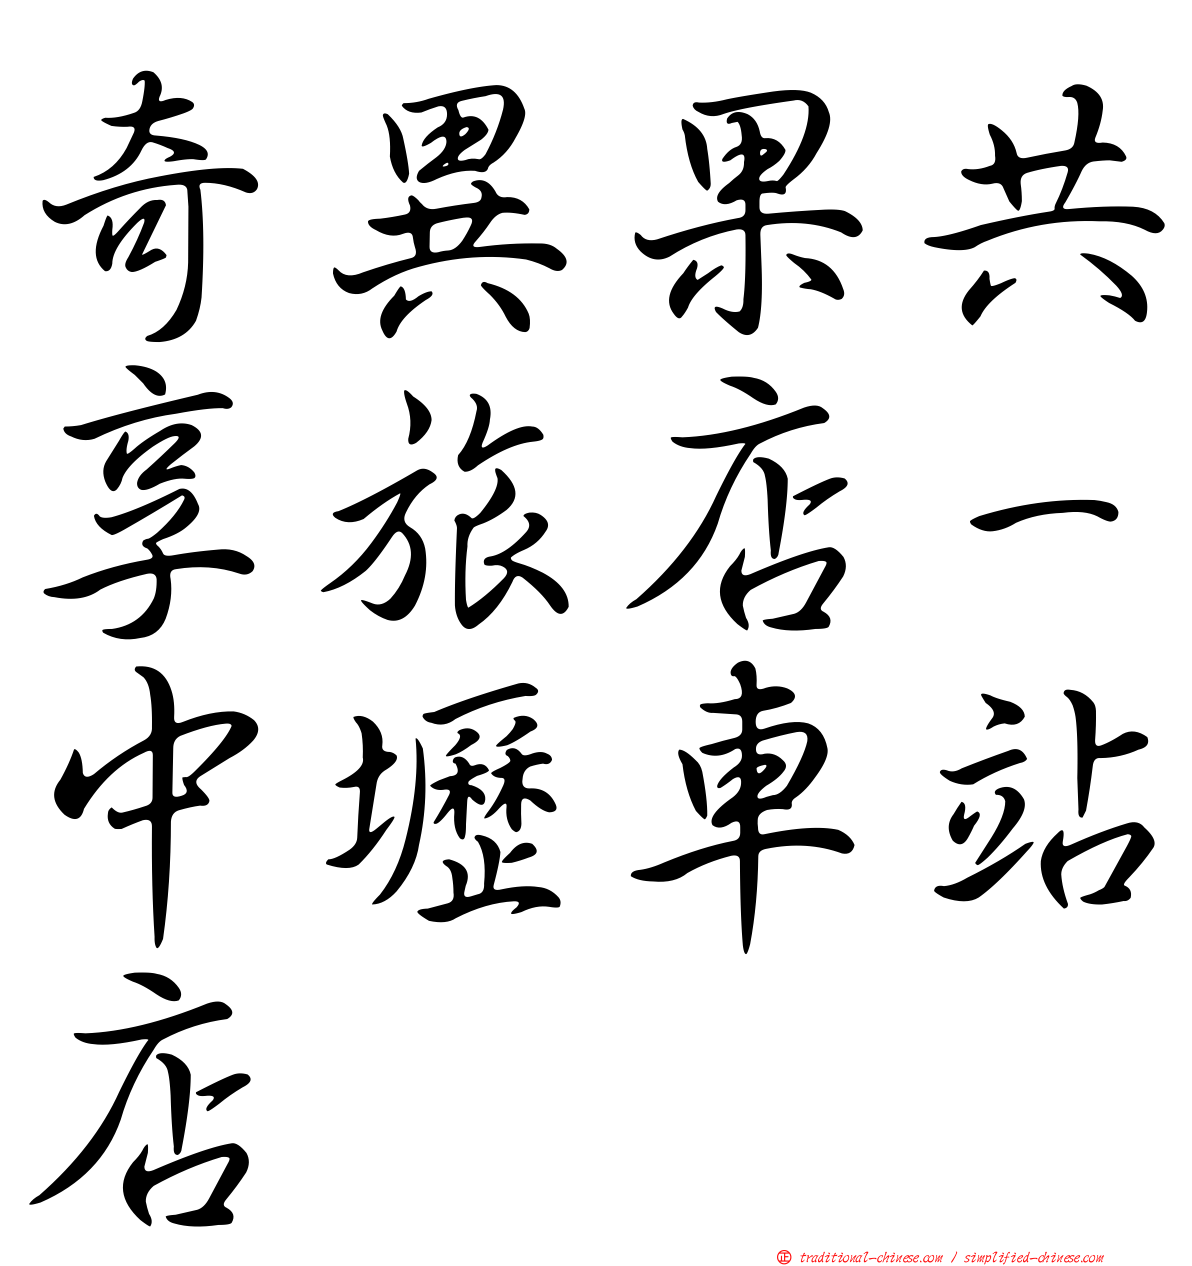 奇異果共
享旅店一
中壢車站
店
正 traditional-chinese.com / simplified-chinese.com